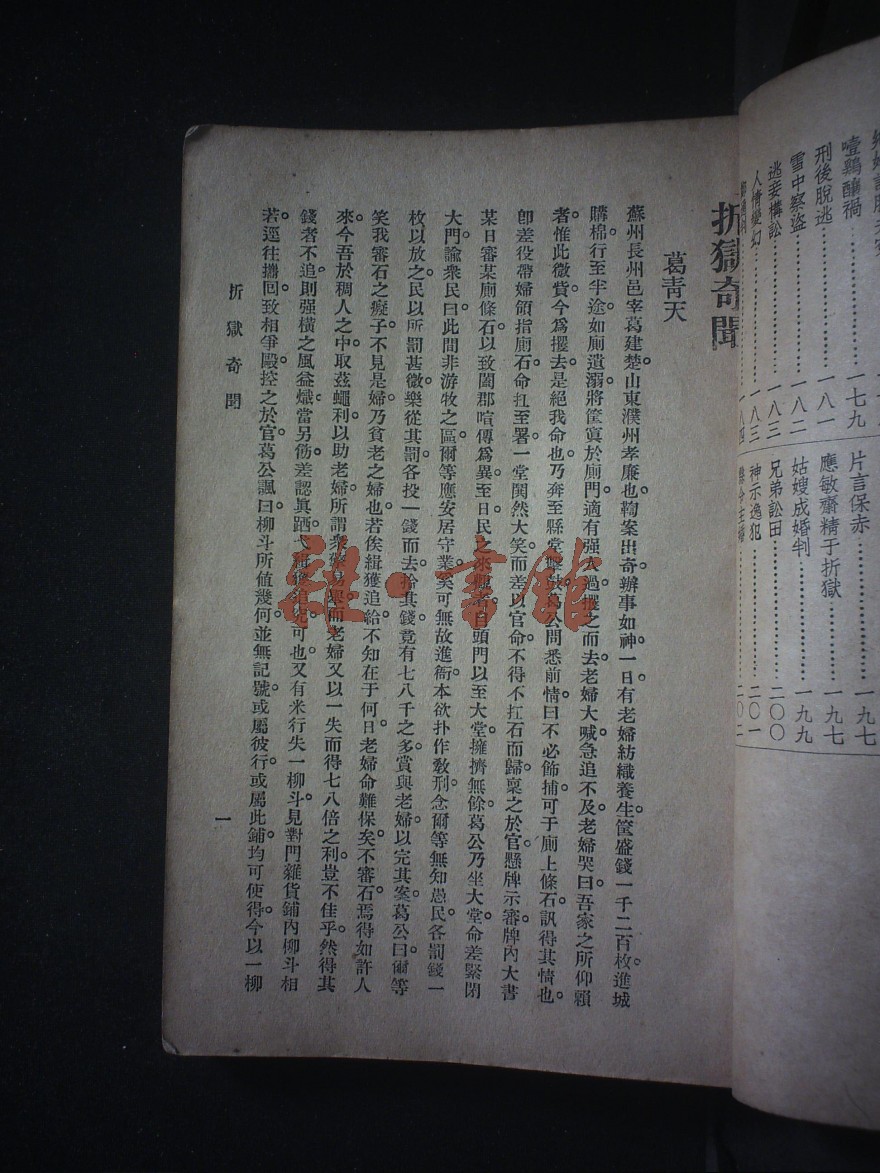 噎鷄釀禍……………一七九
刑後脫逃……………一八一
雪中察盜……………一八二
逃妾構訟……………一八三
人情變幻……………一八三
片言保赤……………一九七
應敏齋精于折獄……………一九七
姑嫂成婚判……………一九九
兄弟訟田……………二〇〇
神示逸犯……………二〇一
折獄奇聞
葛青天
蘇州長州邑宰葛建楚。山東濮州孝廉也。鞫案出奇。辦事如神。一日有老婦紡織養生。筐盛錢一千二百枚。進城
購棉。行至半途。如廁遺溺。將筐寘於廁門。適有强人過攫之而去。老婦大喊。急追不及。老婦哭曰。吾家之所仰賴
者。惟此微貲。今爲攫去。是絕我命也。乃奔至縣堂。擊鼓。葛公問悉前情。曰不必飾捕。可于廁上條石訊得其情也。
卽差役帶婦領指廁石。命扛至署。一堂鬨然大笑。而差以官命。不得不扛石而歸。稟之於官。懸牌示審。牌內大書
某日審某廁條石。以致闔郡喧傳爲異。至日民之來觀者。自頭門以至大堂。擁擠無餘。葛公乃坐大堂。命差緊閉
大門。諭衆民曰。此間非游牧之區。爾等應安居守業。奚可無故進衙。本欲扑作敎刑。念爾等無知愚民。各罰錢一
枚以放之。民以所罰甚微。樂從其罰。各投一錢而去。拾其錢。竟有七八千之多。賞與老婦以完其案。葛公曰。爾等
笑我審石之癡。子不見是婦乃貧老之婦也。若俟緝獲追給。不知在于何日。老婦命難保矣。不審石。焉得如許人
來。今吾於稠人之中。取茲蠅利以助老婦。所謂衆擎易舉。而老婦又以一失而得七八倍之利。豈不佳乎。然得其
錢者不追。則强橫之風益熾。當另飭差認眞緝獲追究可也。又有米行失一柳斗。見對門雜貨鋪內柳斗相
若。逕往攜回。致相爭毆。控之於官。葛公諷曰。柳斗所值幾何。並無記號。或屬彼行。或屬此鋪。均可使得。今以一柳
折獄奇聞
一